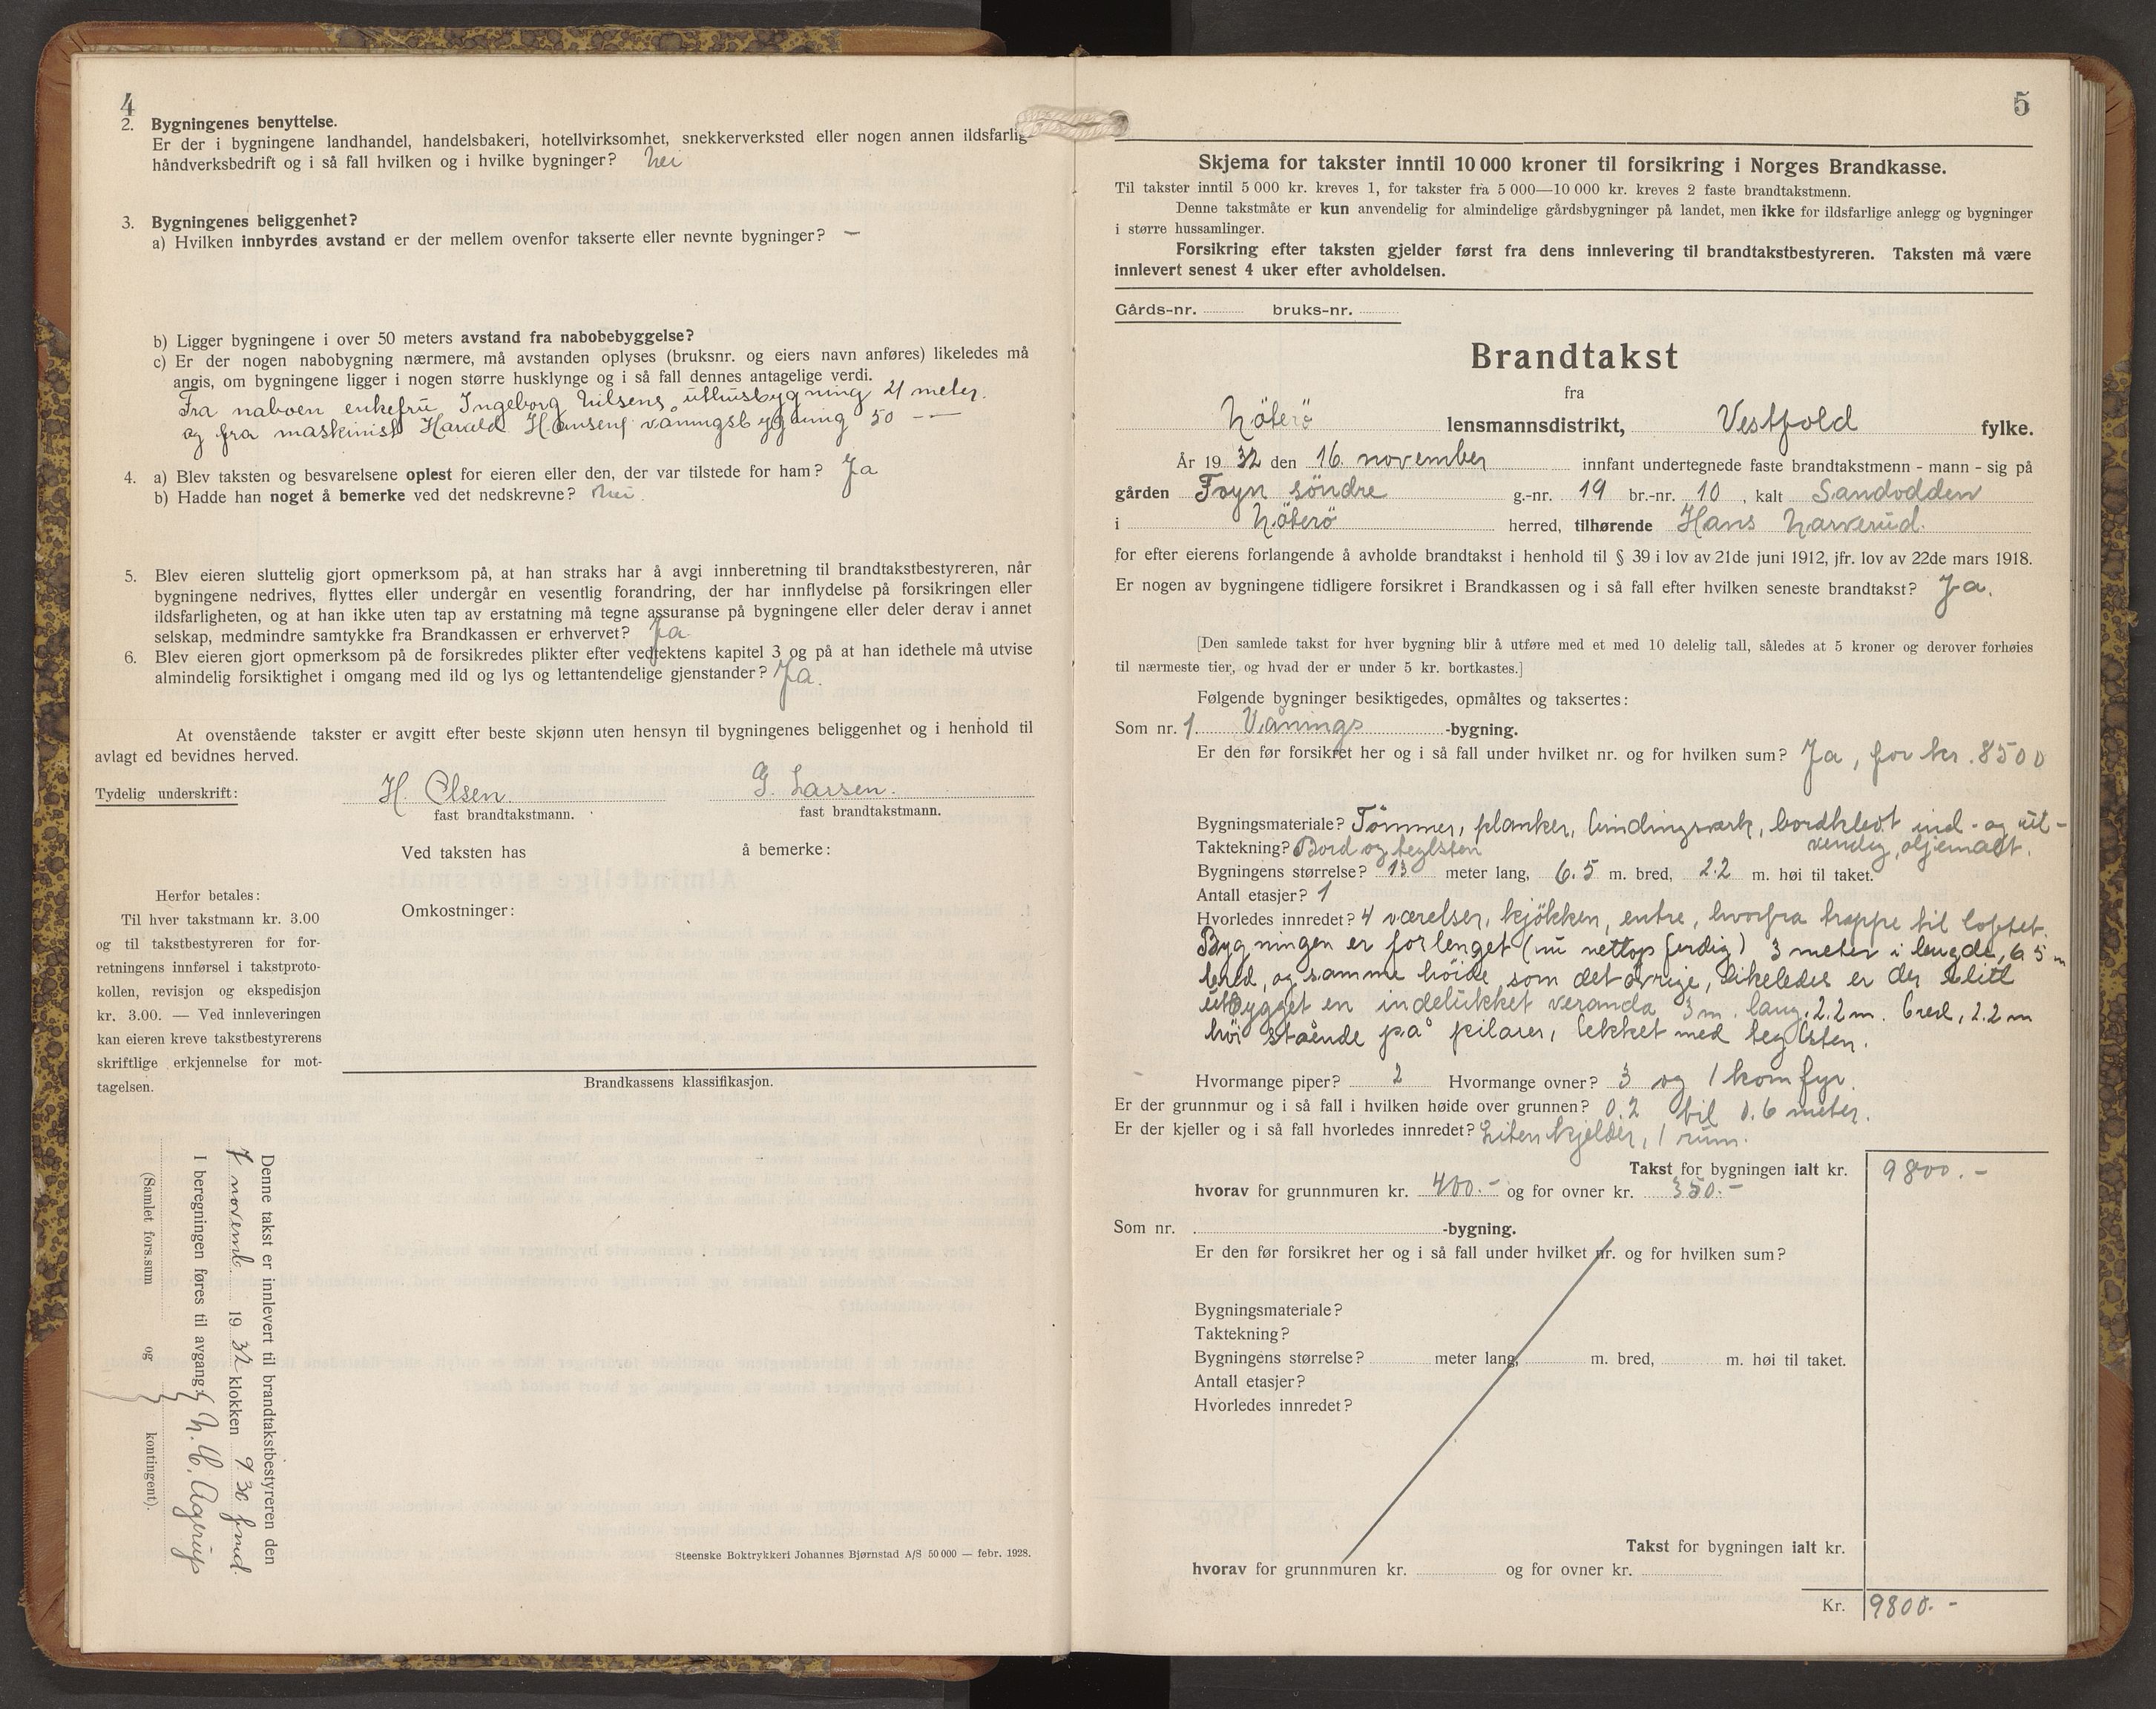 4
2. Bygningenes benyttelse.
Er der i bygningene landhandel, handelsbakeri, hotellvirksomhet, snekkerverksted eller nogen annen ildsfarlig
håndverksbedrift og i så fall hvilken og i hvilke bygninger? Nei
3. Bygningenes beliggenhet?
a) Hvilken innbyrdes avstand er der mellem ovenfor takserte eller nevnte bygninger? —
b) Ligger bygningene i over 50 meters avstand fra nabobebyggelse?
c) Er der nogen nabobygning nærmere, må avstanden oplyses (bruksnr. og eiers navn anføres) likeledes må
angis, om bygningene ligger i nogen større husklynge og i så fall dennes antagelige verdi.
Fra naboen enkefru Ingeborg Nilsens uthusbygning 21 meter.
og fra maskinist Harald Hansens våningsbygning 50 — —
4. a) Blev taksten og besvarelsene oplest for eieren eller den, der var tilstede for ham? Ja
b) Hadde han noget å bemerke ved det nedskrevne? Nei.
5. Blev eieren sluttelig gjort opmerksom på, at han straks har å avgi innberetning til brandtakstbestyreren, når
bygningene nedrives, flyttes eller undergår en vesentlig forandring, der har innflydelse på forsikringen eller
ildsfarligheten, og at han ikke uten tap av erstatning må tegne assuranse på bygningene eller deler derav i annet
selskap, medmindre samtykke fra Brandkassen er erhvervet? Ja
6. Blev eieren gjort opmerksom på de forsikredes plikter efter vedtektens kapitel 3 og på at han idethele må utvise
almindelig forsiktighet i omgang med ild og lys og lettantendelige gjenstander? Ja.
At ovenstående takster er avgitt efter beste skjønn uten hensyn til bygningenes beliggenhet og i henhold til
avlagt ed bevidnes herved.
Tydelig underskrift: H. Olsen. G. Larsen.
fast brandtakstmann. fast brandtakstmann.
Ved taksten has å bemerke:
Omkostninger:
Herfor betales:
Til hver takstmann kr. 3.00
og til takstbestyreren for for-
retningens innførsel i takstproto-
kollen, revisjon og ekspedisjon
kr. 3.00. — Ved innleveringen
kan eieren kreve takstbestyrerens
skriftlige erkjennelse for mot-
tagelsen.
Brandkassens klassifikasjon.
Denne takst er innlevert til brandtakstbestyreren den
7 novemb. 1932 klokken 9.30 fmd.
I beregningen føres til avgang: N. C. Agerup
(Samlet fors.sum og kontingent).
Steenske Boktrykkeri Johannes Bjørnstad A/S 50 000 — febr. 1928.
5
Skjema for takster inntil 10 000 kroner til forsikring i Norges Brandkasse.
Til takster inntil 5 000 kr. kreves 1, for takster fra 5 000—10 000 kr. kreves 2 faste brandtakstmenn.
Denne takstmåte er kun anvendelig for almindelige gårdsbygninger på landet, men ikke for ildsfarlige anlegg og bygninger
i større hussamlinger.
Forsikring efter taksten gjelder først fra dens innlevering til brandtakstbestyreren. Taksten må være
innlevert senest 4 uker efter avholdelsen.
Gårds-nr. bruks-nr.
Brandtakst
fra
Nöterö lensmannsdistrikt, Vestfold fylke.
År 1932 den 16. november innfant undertegnede faste brandtakstmenn - mann - sig på
gården Foyn söndre g.-nr. 19 br.-nr. 10, kalt Sandodden
i Nöterö herred, tilhørende Hans Narverud.
for efter eierens forlangende å avholde brandtakst i henhold til § 39 i lov av 21de juni 1912, jfr. lov av 22de mars 1918.
Er nogen av bygningene tidligere forsikret i Brandkassen og i så fall efter hvilken seneste brandtakst? Ja.
[Den samlede takst for hver bygning blir å utføre med et med 10 delelig tall, således at 5 kroner og derover forhøies
til nærmeste tier, og hvad der er under 5 kr. bortkastes.]
Følgende bygninger besiktigedes, opmåltes og taksertes:
Som nr. 1. Vånings -bygning.
Er den før forsikret her og i så fall under hvilket nr. og for hvilken sum? Ja, for kr. 8500
Bygningsmateriale? Tömmer, planker, bindingsværk, bordkledt ind- og ut-
Taktekning? Bord og teglsten vendig, oljemalt.
Bygningens størrelse? 13 meter lang, 6.5 m. bred, 2.2 m. høi til taket.
Antall etasjer? 1
Hvorledes innredet? 4 værelser, kjökken, entre, hvorfra trappe til loftet.
Bygningen er forlenget (nu nettop ferdig) 3 meter i lengde, 6.5 m
bred, og samme höide som det övrige, likeledes er der blitt
utbygget en indelukket veranda 3 m. lang, 2.2 m. bred, 2.2 m
höi stående på pilarer, tekket med teglsten.
Hvormange piper? 2 Hvormange ovner? 3 og 1 komfyr.
Er der grunnmur og i så fall i hvilken høide over grunnen? 0.2 til 0.6 meter.
Er der kjeller og i så fall hvorledes innredet? Liten kjelder, 1 rum.
Takst for bygningen ialt kr. 9800.-
hvorav for grunnmuren kr. 400.- og for ovner kr. 350.-
Som nr. -bygning.
Er den før forsikret her og i så fall under hvilket nr. og for hvilken sum?
Bygningsmateriale?
Taktekning?
Bygningens størrelse? meter lang, m. bred, m. høi til taket.
Antall etasjer?
Hvorledes innredet?
Takst for bygningen ialt kr.
hvorav for grunnmuren kr. og for ovner kr.
Kr. 9800.-